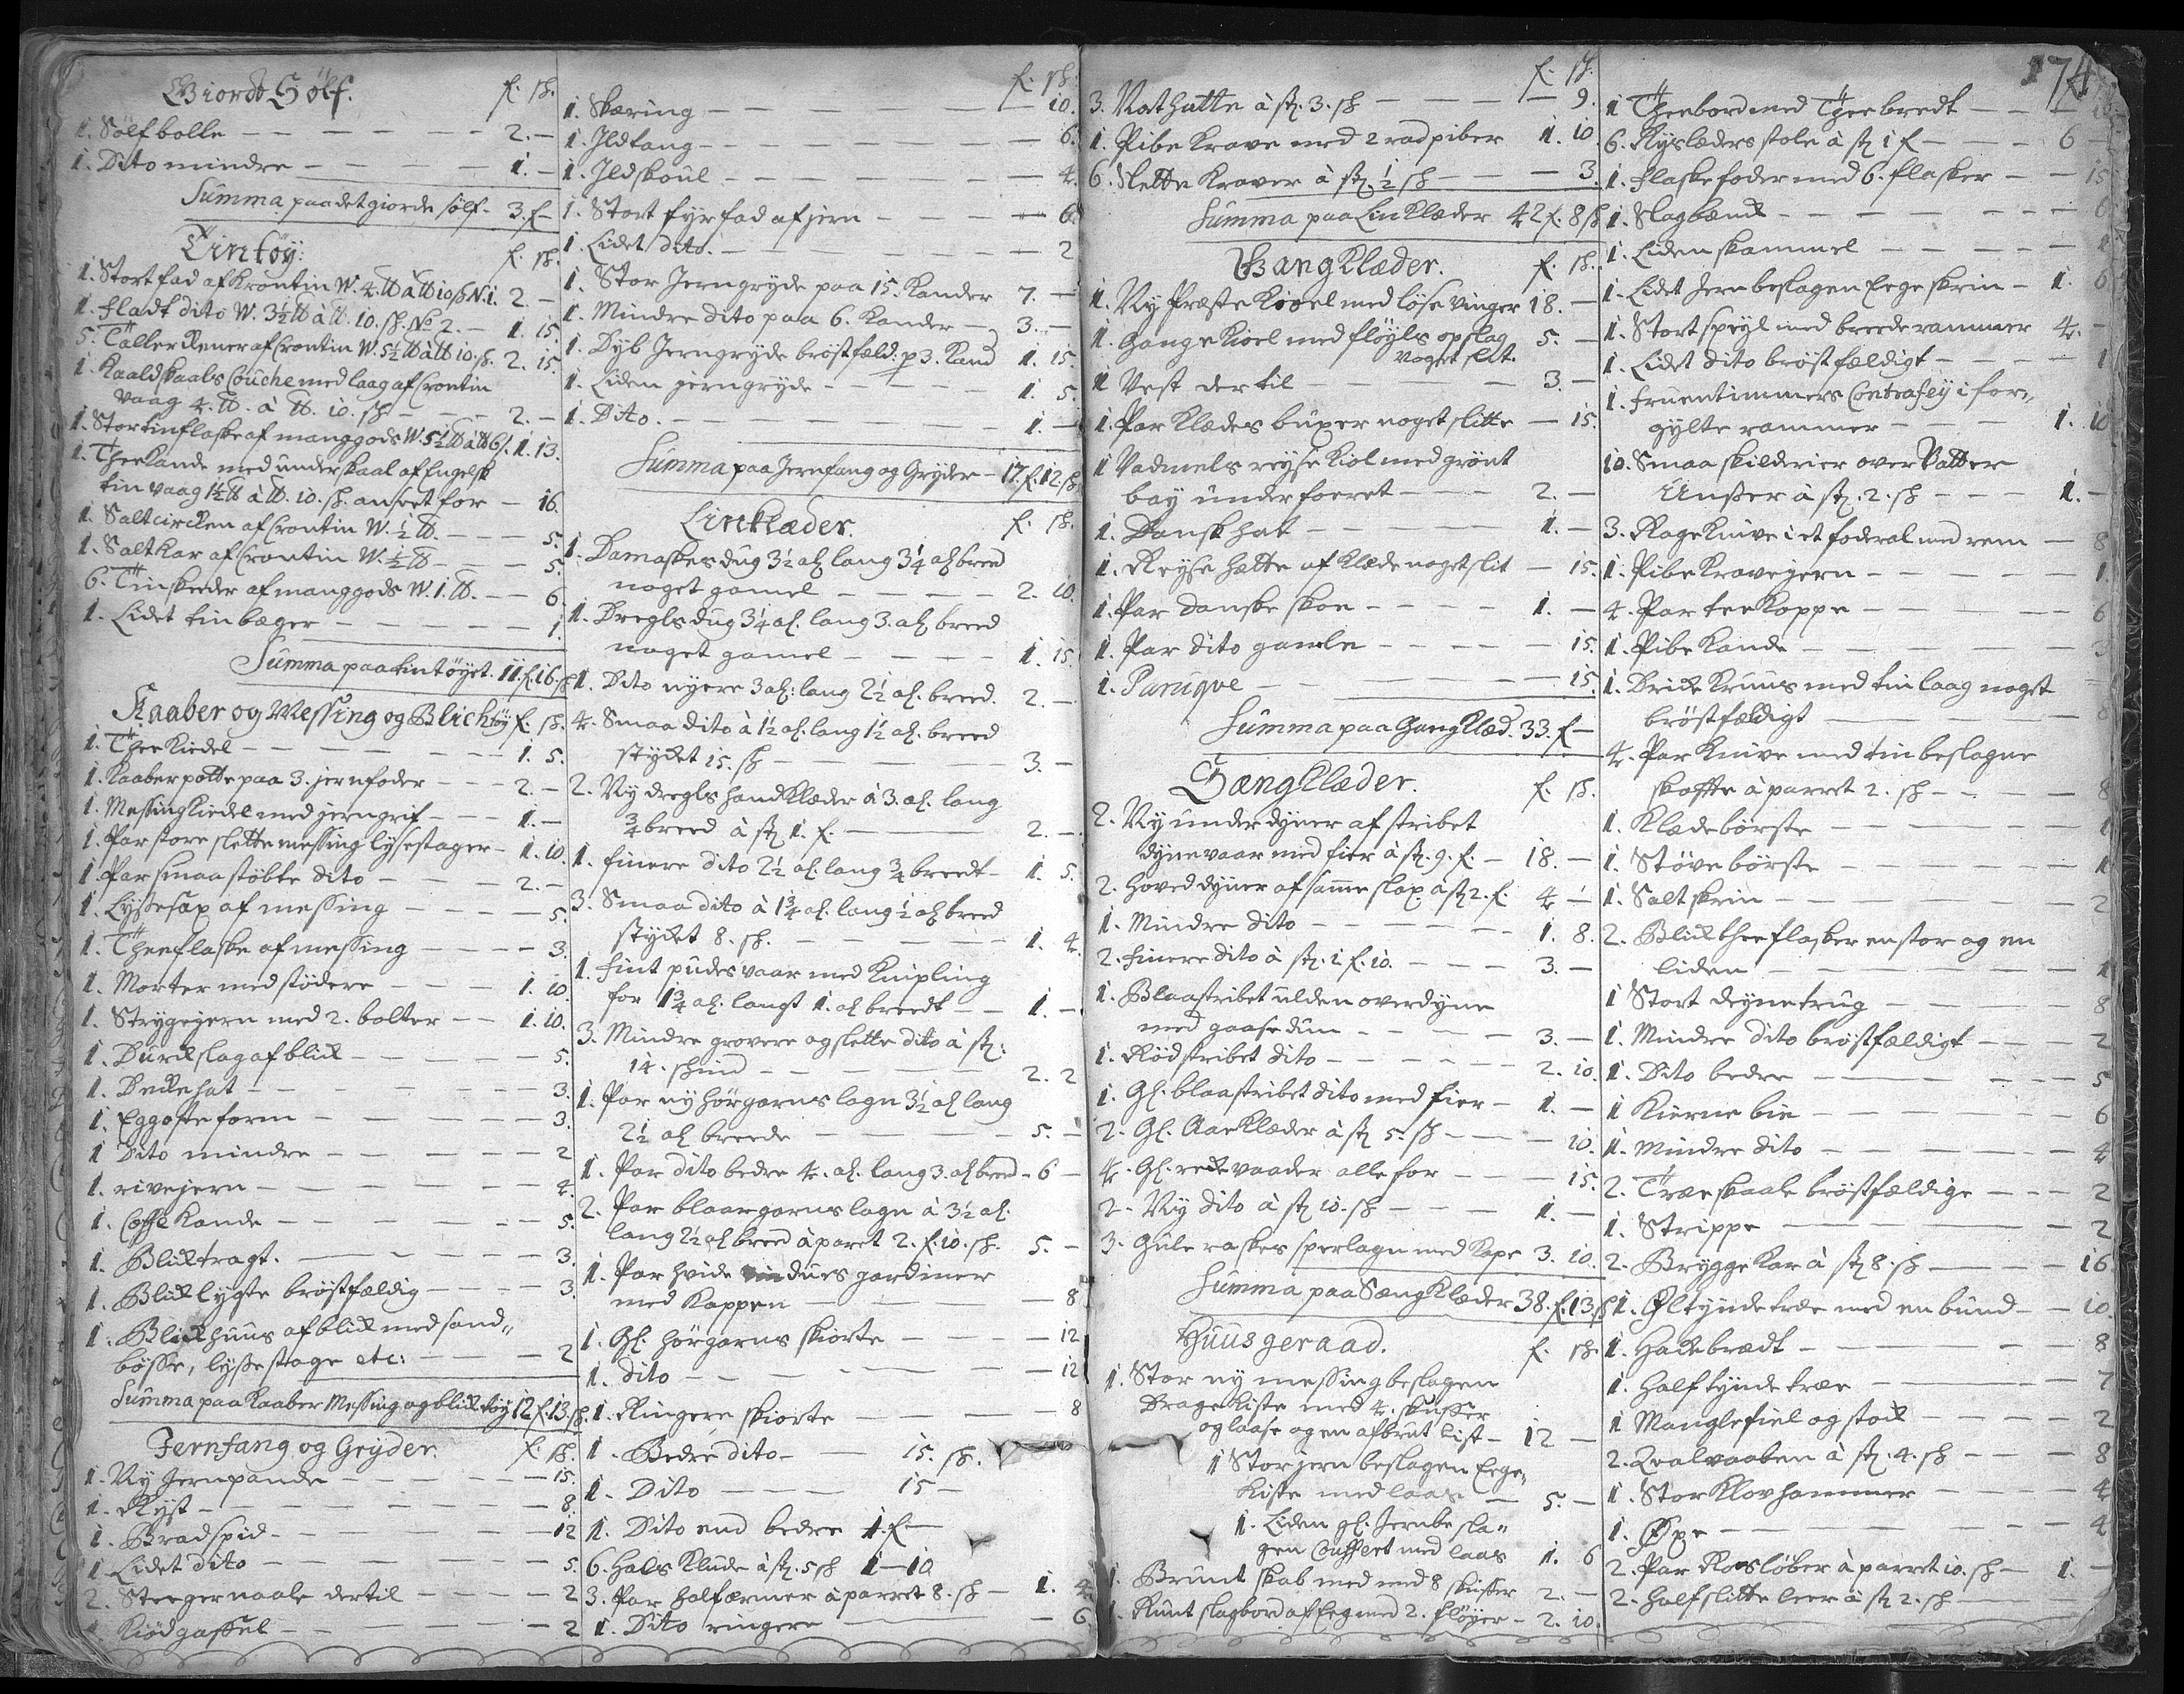 Giordt Sölf. f. sh.
1. Sölf bolle — 2. —
1. Dito mindre — 1. —
Summa paa det giorde sölf — 3. f —
Tintöy: f. sh.
1. Stort fad af Krontin W. 4. ℔ à ℔ 10 sh N. 1. 2. —
1. fladt dito W. 3½ ℔ à ℔. 10. sh. No 2. — 1. 15.
5. Tallerkener af Crontin W. 5½ ℔ à ℔ 10. sh. 2. 15.
1. Kaaldskaals Couche med laag af Crontin
vaag 4. ℔. à ℔. 10. sh — 2. —
1. Stor tinflaske af manggods W. 5½ ℔ à ℔ 6 s. 1. 13.
1. TheeKande med underskaal af Engelsk
tin vaag 1½ ℔ à ℔. 10. sh. anseet for — 16.
1. Saltcircken af Crontin W. ½ ℔. — 5.
1. Salt Kar af Crontin W. ½ ℔ — 5.
6. Tinskeeder af manggods W. 1. ℔. — 6.
1. Lidet tin bæger — 1.
Summa paa tintöyet. 11. f. 16. sh
Kaaber og Messing og Blichtöy f. sh.
1. Thee Kiedel — 1. 5.
1. Kaaber potte paa 3. jernfoder — 2. —
1. Messing Kiedel med jerngrif — 1. —
1. Par store slette messing lysestager — 1. 10.
1 Par smaa stöbte dito — 2. —
1. Lyssesax af messing — 5.
1. Theeflaske af messing — 3.
1. Morter med stödere — 1. 10.
1. Strygejern med 2. bolter — 1. 10.
1. Durckslag af blick — 5.
1. Deckehat — 3.
1. Eggoste form — 3.
1 Dito mindre — 2
1. rivejern — 4.
1. Coffe Kande — 5.
1. Blicktragt. — 3.
1. Blick lygte bröstfældig — 3.
1. Blickhuus af blick med sand„
bösse, lyssestage etc: — 2
Summa paa Kaaber Messing og blicktöy 12 f. 13. sh.
Jernfang og Gryder. f. sh.
1. Ny Jernpande — 15.
1. Ryst — 8.
1. Bradspid — 12
1. Lidet dito — 5.
2. Steegernaale dertil — 2
1. Kiödgaffel — 2
f. sh.
1. Skæring — 10.
1. Jldtang — 6.
1. Jldskoul — 4.
1. Stort fyrfad af jern — 6.
1. Lidet dito. — 2
1. Stor Jerngryde paa 15. Kander 7. —
1. Mindre dito paa 6. Kander — 3. —
1. Dyb Jerngryde bröstfæld: p 3. Kand 1. 15.
1. Liden jerngryde — 1. 5.
1. Dito. — 1. —
Summa paa Jernfang og Gryder — 17. f. 12. sh.
Linklæder. f. sh.
1. Damaskes dug 3½ al lang 3¼ al breed
noget gamel — 2. 10.
1. Dregls dug 3¼ al. lang 3. al breed
noget gamel — 1. 15.
1. Dito nyere 3 al: lang 2½ al. breed. 2. —
4. Smaa dito à 1½ al. lang 1½ al. breed
stycket 15. sh — 3. —
2. Ny dregls handklæder à 3. al. lang
¾ breed à stk 1. f. — 2. —
1. finere dito 2½ al. lang ¾ breedt — 1. 5.
3. Smaa dito à 1¾ al. lang ½ al breed
stycket 8. sh. — 1. 4.
1. fint pudes vaar med Knipling
for 1¾ al. langt 1. al breedt — 1. —
3. Mindre grovere og slette dito à stk:
14. shind — 2. 2
1. Par ny hörgarns lagn 3½ al lang
2½ al breede — 5. —
1. Par dito bedre 4. al. lang 3. al breed — 6 —
2. Par blaargarns lagn à 3½ al.
lang 2½ al breed à paret 2. f. 10. sh. 5. —
1. Par hvide vindues gardiner
med Kappen — 8
1. Gl. hörgarns skiorte — 12
1. dito — 12
1. Ringere skiorte — 8
1. Bedre dito — 15. sh.
1. Dito — 15 —
1. Dito end bedre 1. f —
6. Hals Klude à stk. 5 sh 1 — 10
3. Par halfærmer à parret 8. sh — 1. 4.
1. Dito ringere — 6.
f. sh.
3. Nathutte à stk. 3. sh — 9.
1. Pibe Krave med 2 rad piber 1. 10
6. Slette Kraver à stk. ½ sh — 3.
Summa paa Lin Klæder 42 f. 8 sh
Gang Klæder. f. sh.
1. Ny Præste Kioel med löse vinger 18. —
1. Gange Kioel med flöyls opslag
noget slit. 5. —
1 Vest dertil — 3. —
1. Par Klædes buxer noget slitte — 15.
1 Vadmels reyse Kiol med grönt
bay underforet — 2. —
1. Dansk hat — 1. —
1. Reyse hætte af Klæde noget slit — 15.
1. Par danske skoe — 1. —
1. Par dito gamle — 15.
1. Paruque — 15.
Summa paa Gang Klæd. 33. f —
Sængklæder. f. sh.
2. Ny underdyner af stribet
dynevaar med fier à stk. 9. f. — 18. —
2. hoved dyner af samme slax. à stk 2. f. 4 —
1. Mindre dito — 1. 8.
2. finere dito à stk. 1 f. 10. — 3. —
1. Blaastribet ulden overdyne
med gaase dun — 3. —
1. Rödstribet dito — 2. 10.
1. Gl. blaastribet dito med fier — 1. —
2. Gl. Aareklæder à stk 5. sh — 10.
4. Gl. reckevaader alle for — 15.
2. Ny dito à stk 10. sh — 1. —
3. Gule raskes sperlagn med Kape 3. 10.
Summa paa Sæng Klæder 38. f. 13. sh
Huusgeraad. f. sh.
1. Stor ny messingbeslagen
Drage Kiste med 4. skuffer
og laase og en afbrut List — 12 —
1 Stor jern beslagen Eege„
Kiste med laas — 5. —
1. Liden gl. Jernbesla„
gen Couffert med laas 1. 6
1. Brunt skab med med 8 skuffer 2. —
1. Runt slagbord af Eeg med 2. flöyer — 2. 10.
174
1 Theebord med Theebredt — 10
6. Ryslæders stole à stk 1 f — 6 —
1. flaskefoder med 6. flasker — 15
1. Slagbænck — 6
1. Liden skammel — 1
1. Lidet Jernbeslagen Eege skrin — 1. 6
1. Stort speyl med breede rammer 4. —
1. Lidet dito bröstfældigt — 1
1. Fruentimmers Contrafey i for„
gylte rammer — 1. 10
10. Smaa skilderier over Vatter
Unsser à stk. 2. sh — 1. —
3. Rage Knive i et foderal med rem — 8
1. Pibe Kravejern — 1.
4. Par tee Koppe — 6
1. Pibe Kande — 3
1. Dricke Kruus med tin laag noget
bröstfældigt — 8
4. Par Knive med tin beslagne
skaffte à parret 2. sh — 8
1. Klædebörste — 1
1. Stövebörste — 1
1. Salt skrin — 2
2. Blick theeflasker en stor og en
liden — 1
1 Stort deynetrug — 8
1. Mindre dito bröstfældigt — 2
1. Dito bedre — 5
1 Kierne bie — 6
1. Mindre dito — 4
2. Træeskaale bröstfældige — 2
1. Strippe — 2
2. Brygge Kar à stk 8. sh — 16
1. Öltynde træe med en bund — 10.
1. Hackebrædt — 8
1. Half tynde træe — 7
1 Manglefiel og stock — 2
2. Qvalvaaben à stk. 4. sh — 8
1. Stor Klovhammer — 4
1. Öxe — 4
2. Par Kosslöber à parret 10. sh — 1. —
2. Halfslitte leer à stk 2. sh —